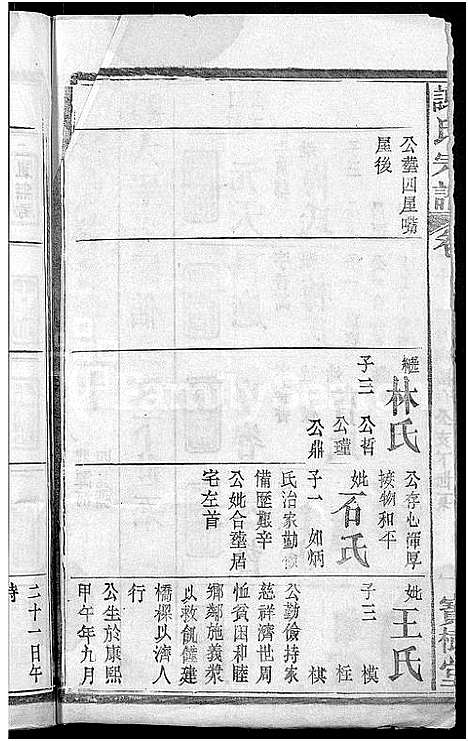 謝氏宗譜
卷
寶樹堂
公𦵏四屋嘴
屋後
繼林氏
子三
公哲
公瓊
公鼎
公存心渾厚
接物和平
妣石氏
子一
如炳
氏治家勤儉
備歷艱辛
公妣合𦵏居
宅左首
妣王氏
子三
模
枉
棋
公勤儉持家
慈祥濟世周
恤貧困和睦
鄉鄰施義漿
以救飢饉建
橋樑以濟人
行
公生於康熙
甲午年九月
二十一日午
時